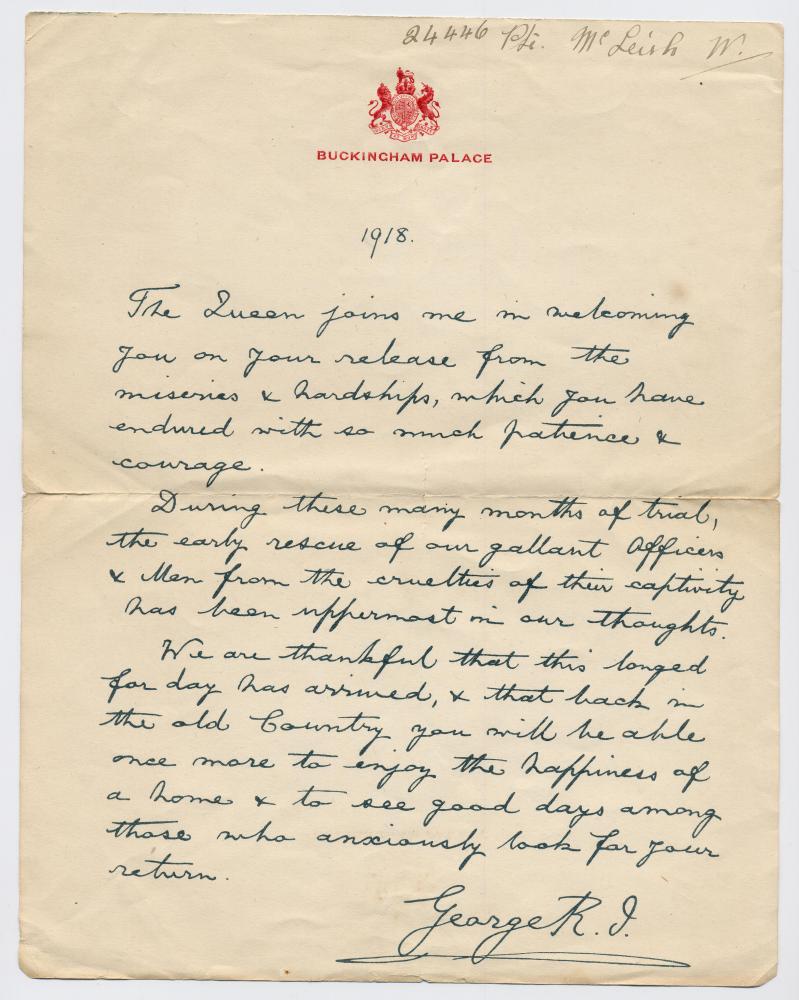 24446 Pte. McLeish W.
BUCKINGHAM PALACE
1918.
The Queen joins me in welcoming
you on your release from the
miseries & hardships, which you have
endured with so much patience &
courage.
During these many months of trial,
the early rescue of our gallant Officers
& Men from the cruelties of their captivity
has been uppermost in our thoughts.
We are thankful that this longed
for day has arrived, & that back in
the old Country you will be able
once more to enjoy the happiness of
a home & to see good days among
those who anxiously look for your
return.
George R.I.